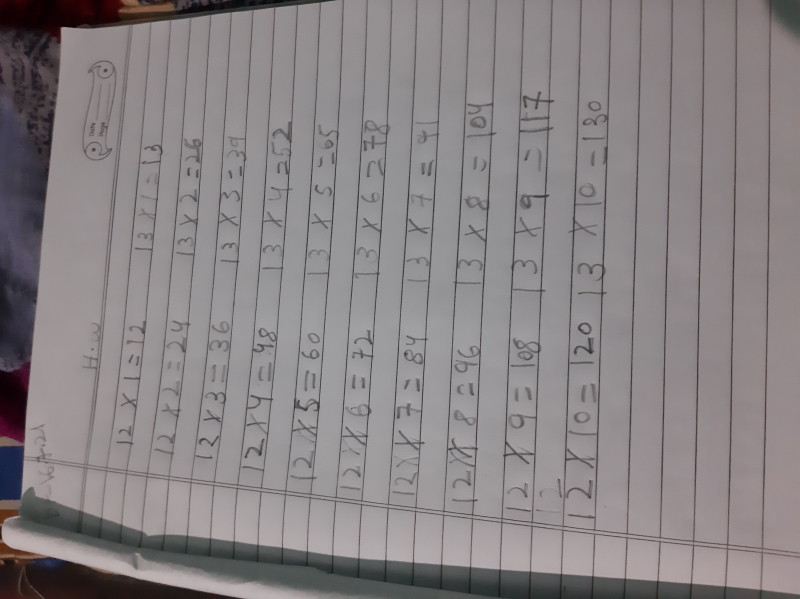 Date
Page
H.w
12 X 1 = 12 13 X 1 = 13
12 X 2 = 24 13 X 2 = 26
12 X 3 = 36 13 X 3 = 39
12 X 4 = 48 13 X 4 = 52
12 X 5 = 60 13 X 5 = 65
12 X 6 = 72 13 X 6 = 78
12 X 7 = 84 13 X 7 = 91
12 X 8 = 96 13 X 8 = 104
12 X 9 = 108 13 X 9 = 117
12
12 X 10 = 120 13 X 10 = 130